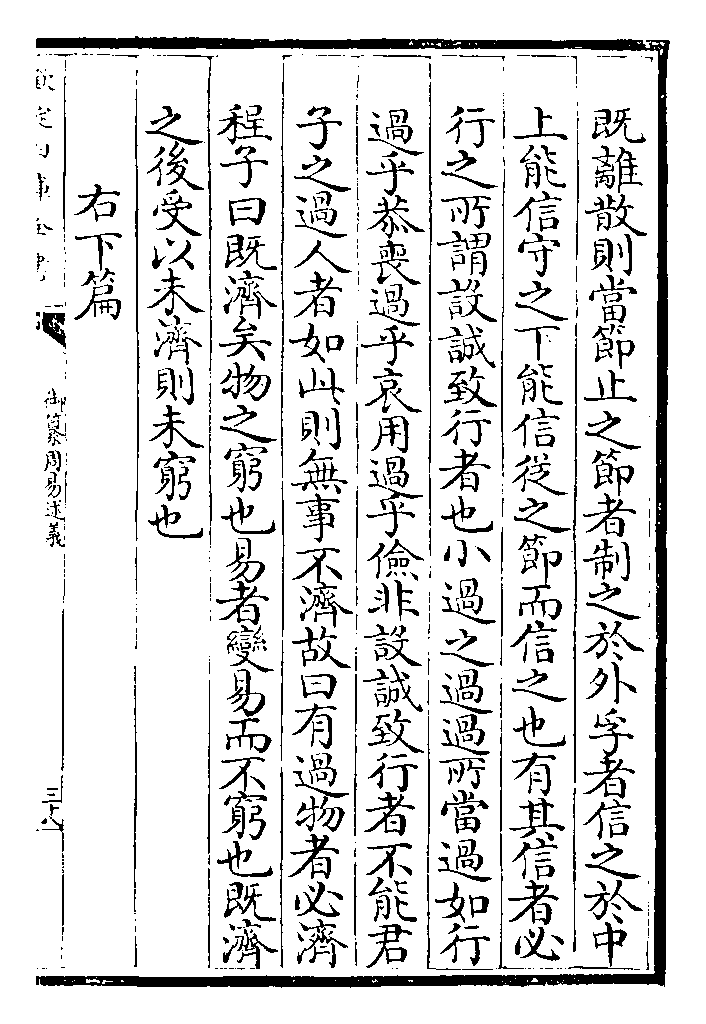 既離散則當節止之節者制之於外孚者信之於中
上能信守之下能信從之節而信之也有其信者必
行之所謂設誠致行者也小過之過過所當過如行
過乎恭喪過乎哀用過乎儉非設誠致行者不能君
子之過人者如此則無事不濟故曰有過物者必濟
程子曰既濟矣物之窮也易者變易而不窮也既濟
之後受以未濟則未窮也
右下篇
欽定四庫全書
御纂周易述義
三十八